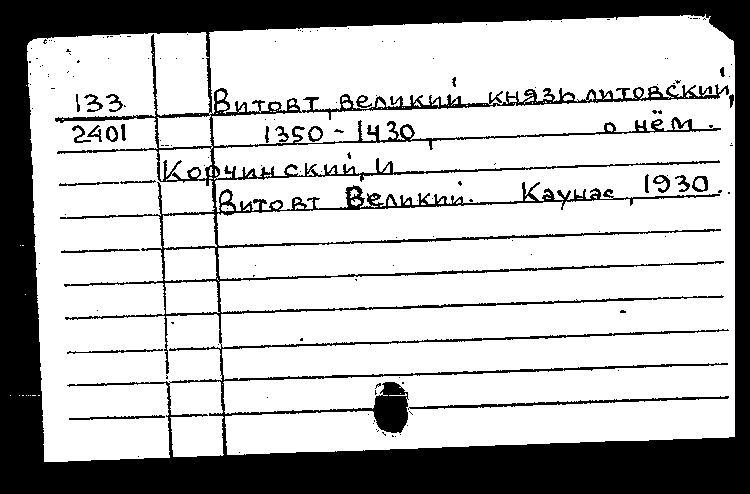 133 Витовт, великий князь литовский,
2401 1350 - 1430, о нём.
Корчинский, И
Витовт Великий. Каунас, 1930.